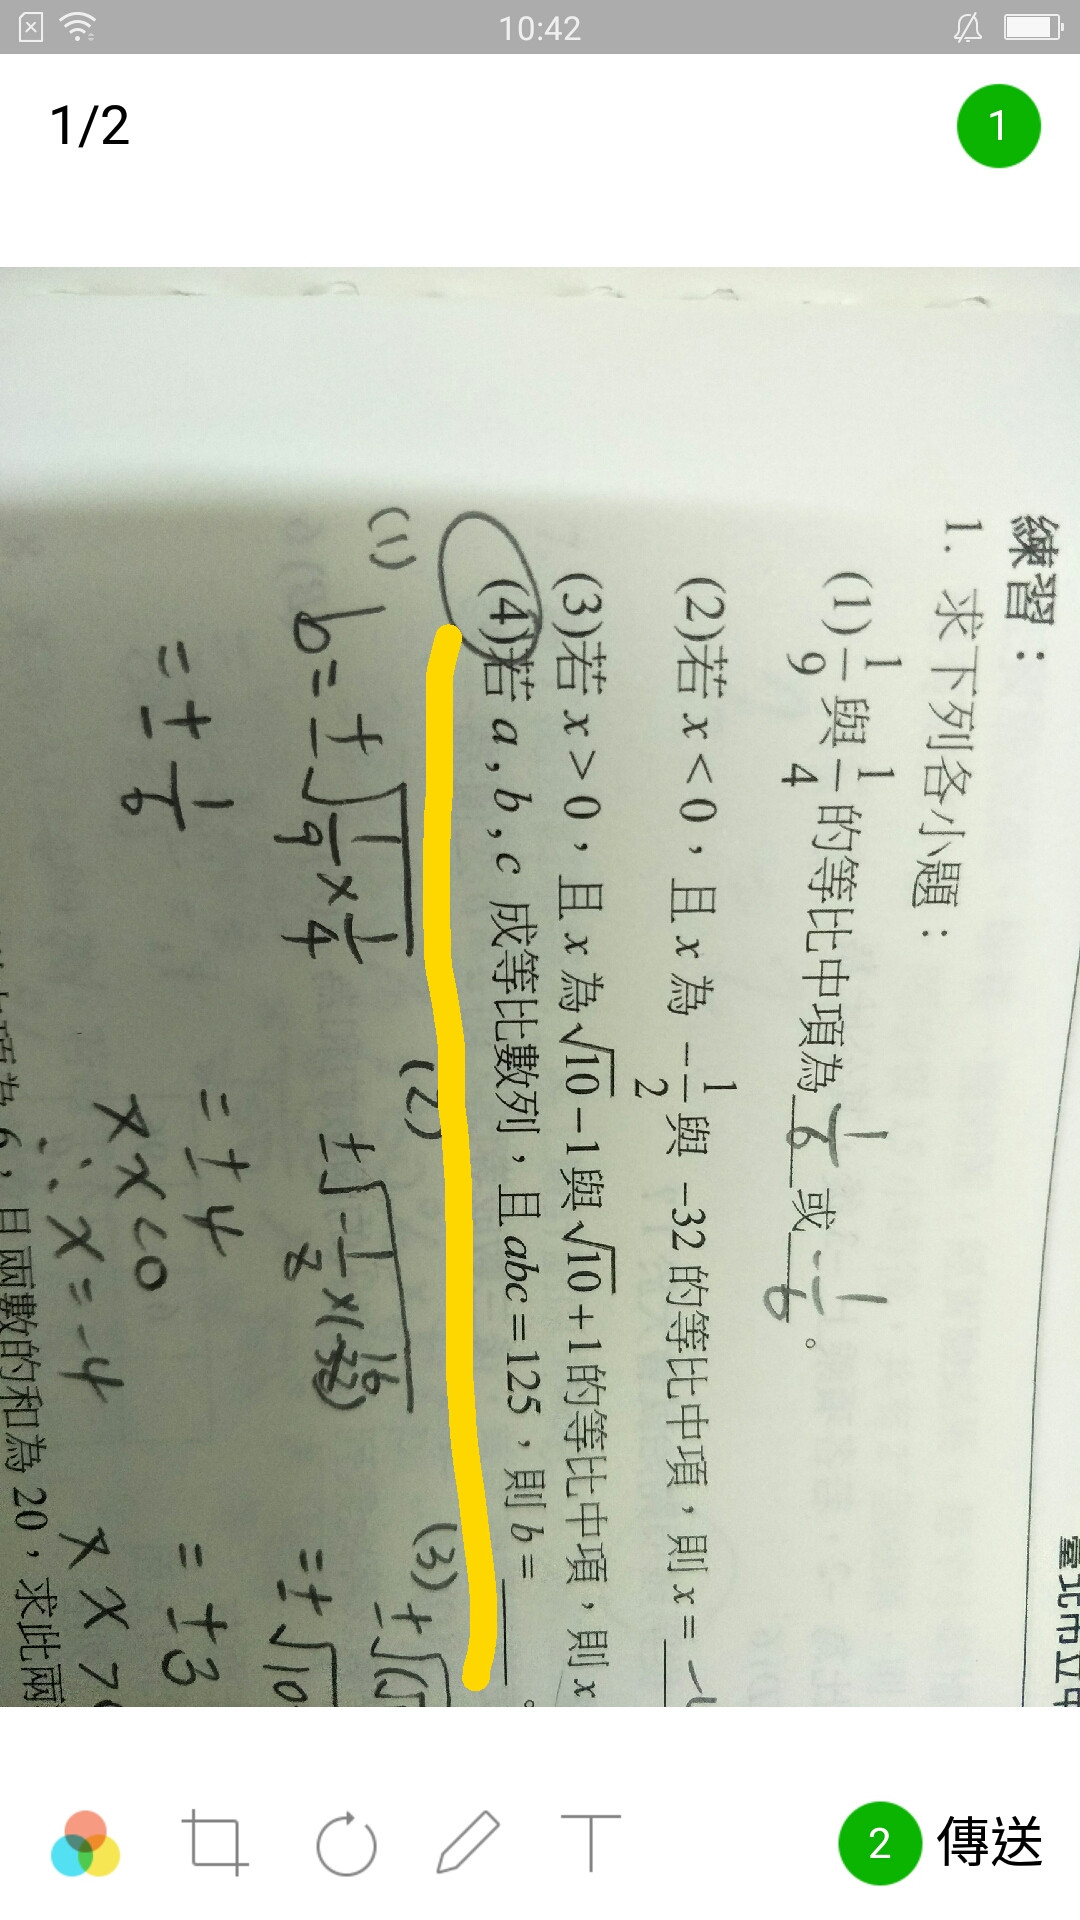 10:42
1/2
1
臺北市立中
練習：
1. 求下列各小題：
(1) 1/9 與 1/4 的等比中項為 1/6 或 -1/6 。
(2)若 x < 0，且 x 為 -1/2 與 -32 的等比中項，則 x = -4
(3)若 x > 0，且 x 為 √10 - 1 與 √10 + 1 的等比中項，則 x
(4)若 a , b , c 成等比數列，且 abc = 125，則 b = 。
(1) b = ±√(1/9 × 1/4)
= ± 1/6
(2) ±√(-1/2 × (-32)) 16
= ± 4
× x < 0
∴ x = -4
(3) ±√(
= ±√10
= ± 3
× x > 0
6，且兩數的和為 20，求此兩
2 傳送